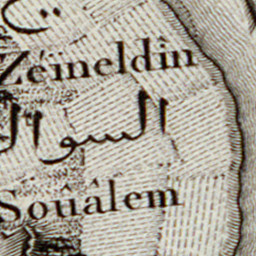 Zeîneldîn
السوالم
Souâlem